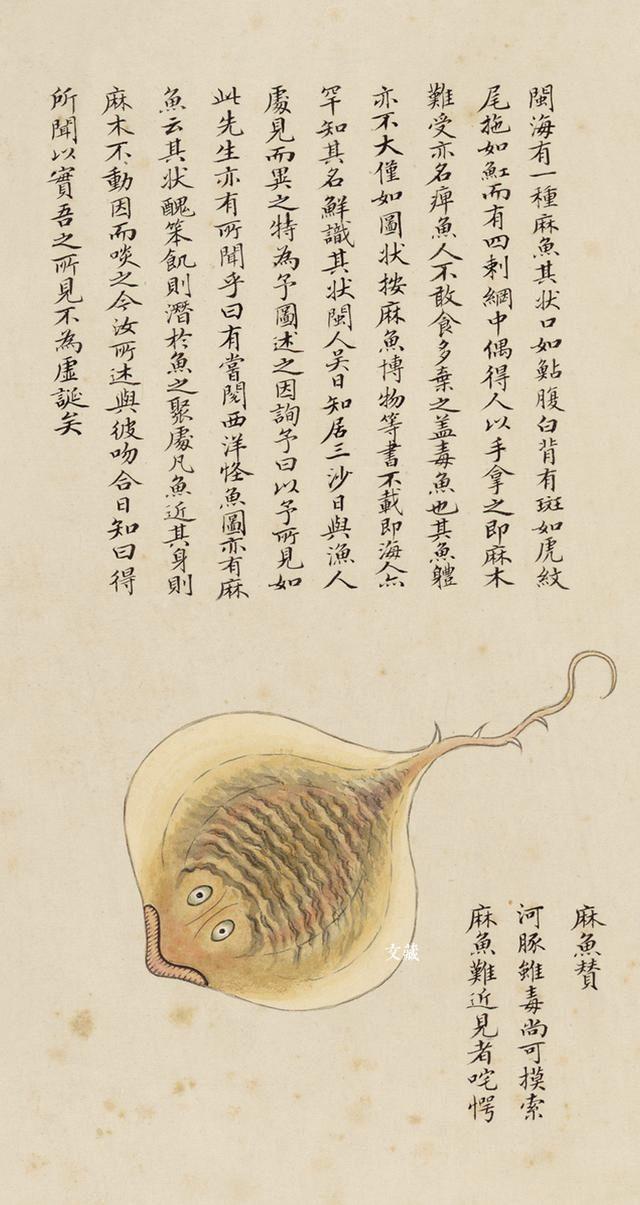 閩海有一種麻魚其狀口如鮎腹白背有斑如虎紋
尾拖如魟而有四刺網中偶得人以手拿之即麻木
難受亦名痺魚人不敢食多棄之盖毒魚也其魚軆
亦不大僅如圖狀按麻魚博物等書不載即海人亦
罕知其名鮮識其狀閩人吳日知居三沙日與漁人
處見而異之特為予圖述之因詢予曰以予所見如
此先生亦有所聞乎曰有嘗閱西洋怪魚圖亦有麻
魚云其狀醜笨飢則潛於魚之聚處凡魚近其身則
麻木不動因而啖之今汝所述與彼吻合日知曰得
所聞以實吾之所見不為虛誕矣
麻魚賛
河豚雖毒尚可摸索
麻魚難近見者咤愕
文藏